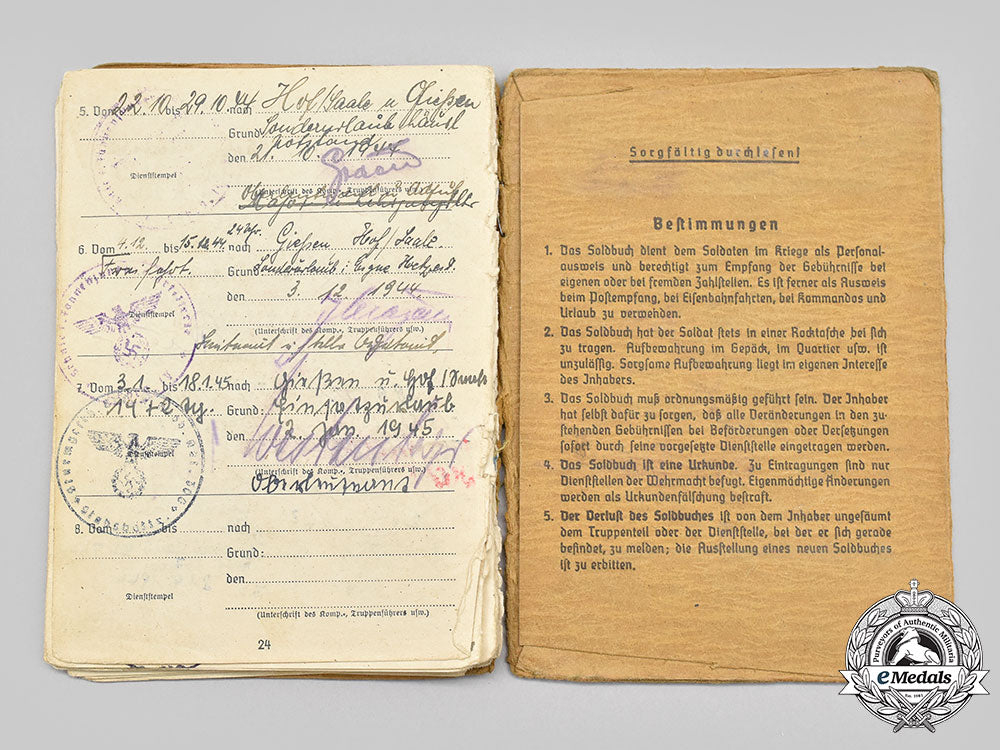 5. Vom 22.10 bis 29.10.44 nach Hof/Saale u Gießen
Grund Sonderurlaub
den 21. 10. 1944
Dienststempel
(Unterschrift des Komp., Truppenführers usw.)
24 Uhr
6. Vom 4.12. bis 15.12.44 nach Gießen Hof/Saale
Freifahrt. Grund Sonderurlaub: Eigne Hochzeit.
den 3. 12 1944
Dienststempel
(Unterschrift des Komp., Truppenführers usw.)
Leutnant u
7. Vom 3.1. bis 18.1.45 nach Gießen u. Hof/Saale
14+2 Tg. Grund: Einsatzurlaub
den 2. Jan. 1945
Dienststempel
(Unterschrift des Komp., Truppenführers usw.)
Oberleutnant
8. Vom bis nach
Grund:
den
Dienststempel
(Unterschrift des Komp., Truppenführers usw.)
24
Sorgfältig durchlesen!
Bestimmungen
1. Das Soldbuch dient dem Soldaten im Kriege als Personal-
ausweis und berechtigt zum Empfang der Gebührnisse bei
eigenen oder bei fremden Zahlstellen. Es ist ferner als Ausweis
beim Postempfang, bei Eisenbahnfahrten, bei Kommandos und
Urlaub zu verwenden.
2. Das Soldbuch hat der Soldat stets in einer Rocktasche bei sich
zu tragen. Aufbewahrung im Gepäck, im Quartier usw. ist
unzulässig. Sorgsame Aufbewahrung liegt im eigenen Interesse
des Inhabers.
3. Das Soldbuch muß ordnungsmäßig geführt sein. Der Inhaber
hat selbst dafür zu sorgen, daß alle Veränderungen in den zu-
stehenden Gebührnissen bei Beförderungen oder Versetzungen
sofort durch seine vorgesetzte Dienststelle eingetragen werden.
4. Das Soldbuch ist eine Urkunde. Zu Eintragungen sind nur
Dienststellen der Wehrmacht befugt. Eigenmächtige Änderungen
werden als Urkundenfälschung bestraft.
5. Der Verlust des Soldbuches ist von dem Inhaber ungesäumt
dem Truppenteil oder der Dienststelle, bei der er sich gerade
befindet, zu melden; die Ausstellung eines neuen Soldbuches
ist zu erbitten.
Purveyors of Authentic Militaria
eMedals